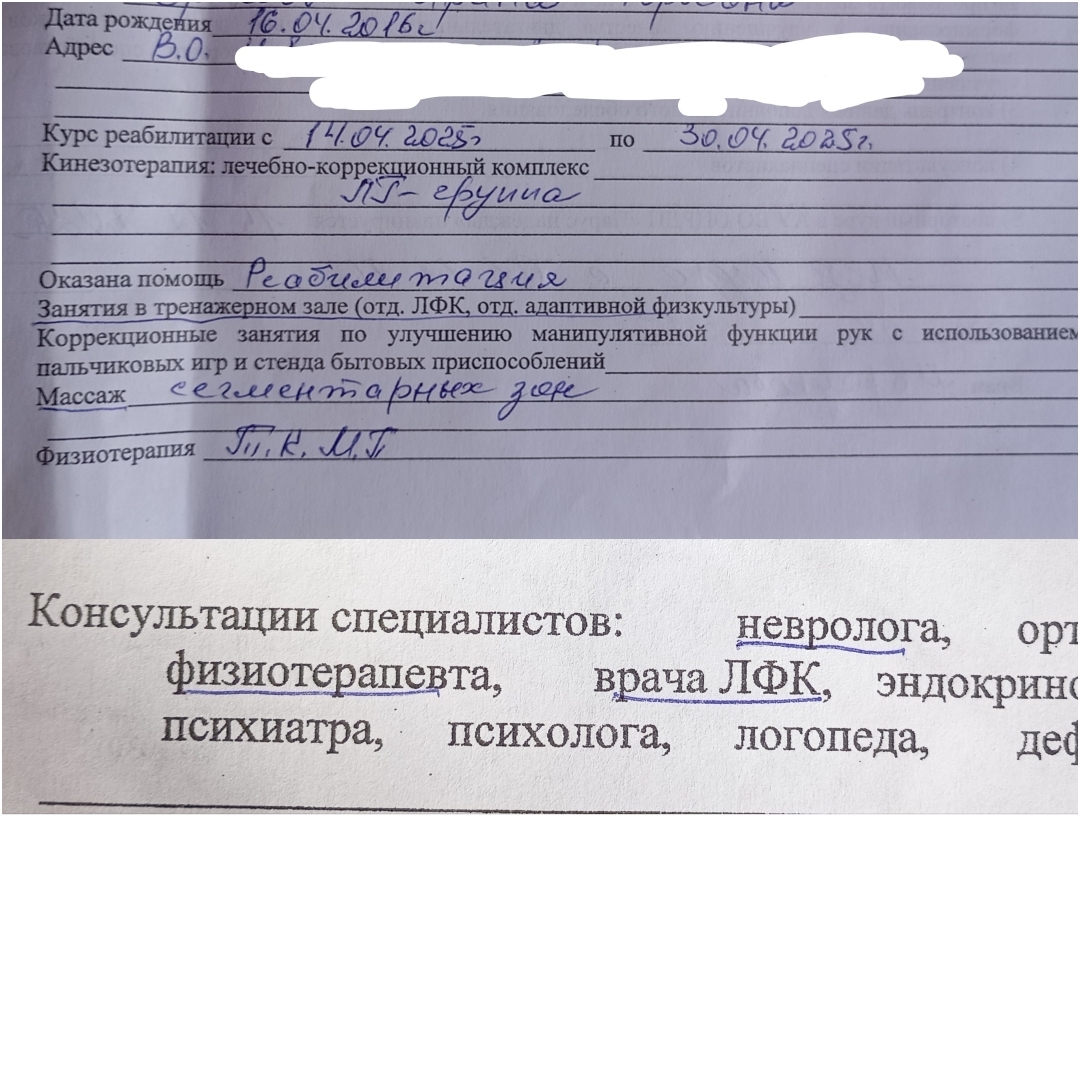 Дата рождения 16.04.2016г
Адрес В.О.
Курс реабилитации с 14.04.2025г по 30.04.2025г.
Кинезотерапия: лечебно-коррекционный комплекс
ЛГ- группа
Оказана помощь Реабилитация
Занятия в тренажерном зале (отд. ЛФК, отд. адаптивной физкультуры)
Коррекционные занятия по улучшению манипулятивной функции рук с использованием
пальчиковых игр и стенда бытовых приспособлений
Массаж сегментарных зон
Физиотерапия Т.К.М.П
Консультации специалистов: невролога, орт
физиотерапевта, врача ЛФК, эндокрино
психиатра, психолога, логопеда, деф